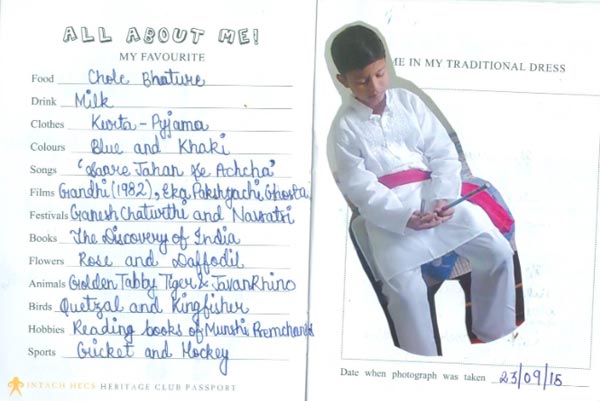 ALL ABOUT ME!
MY FAVOURITE
Food Chole Bhature
Drink Milk
Clothes Kurta-Pyjama
Colours Blue and Khaki
Songs 'Saare Jahan Se Achcha'
Films Gandhi (1982), Eka Pakshyachi Ghosta
Festivals Ganesh Chaturthi and Navratri
Books The Discovery of India
Flowers Rose and Daffodil
Animals Golden Tabby Tiger & Javan Rhino
Birds Quetzal and Kingfisher
Hobbies Reading books of Munshi Premchand
Sports Cricket and Hockey
INTACH HECS HERITAGE CLUB PASSPORT
ME IN MY TRADITIONAL DRESS
Date when photograph was taken 23/09/15